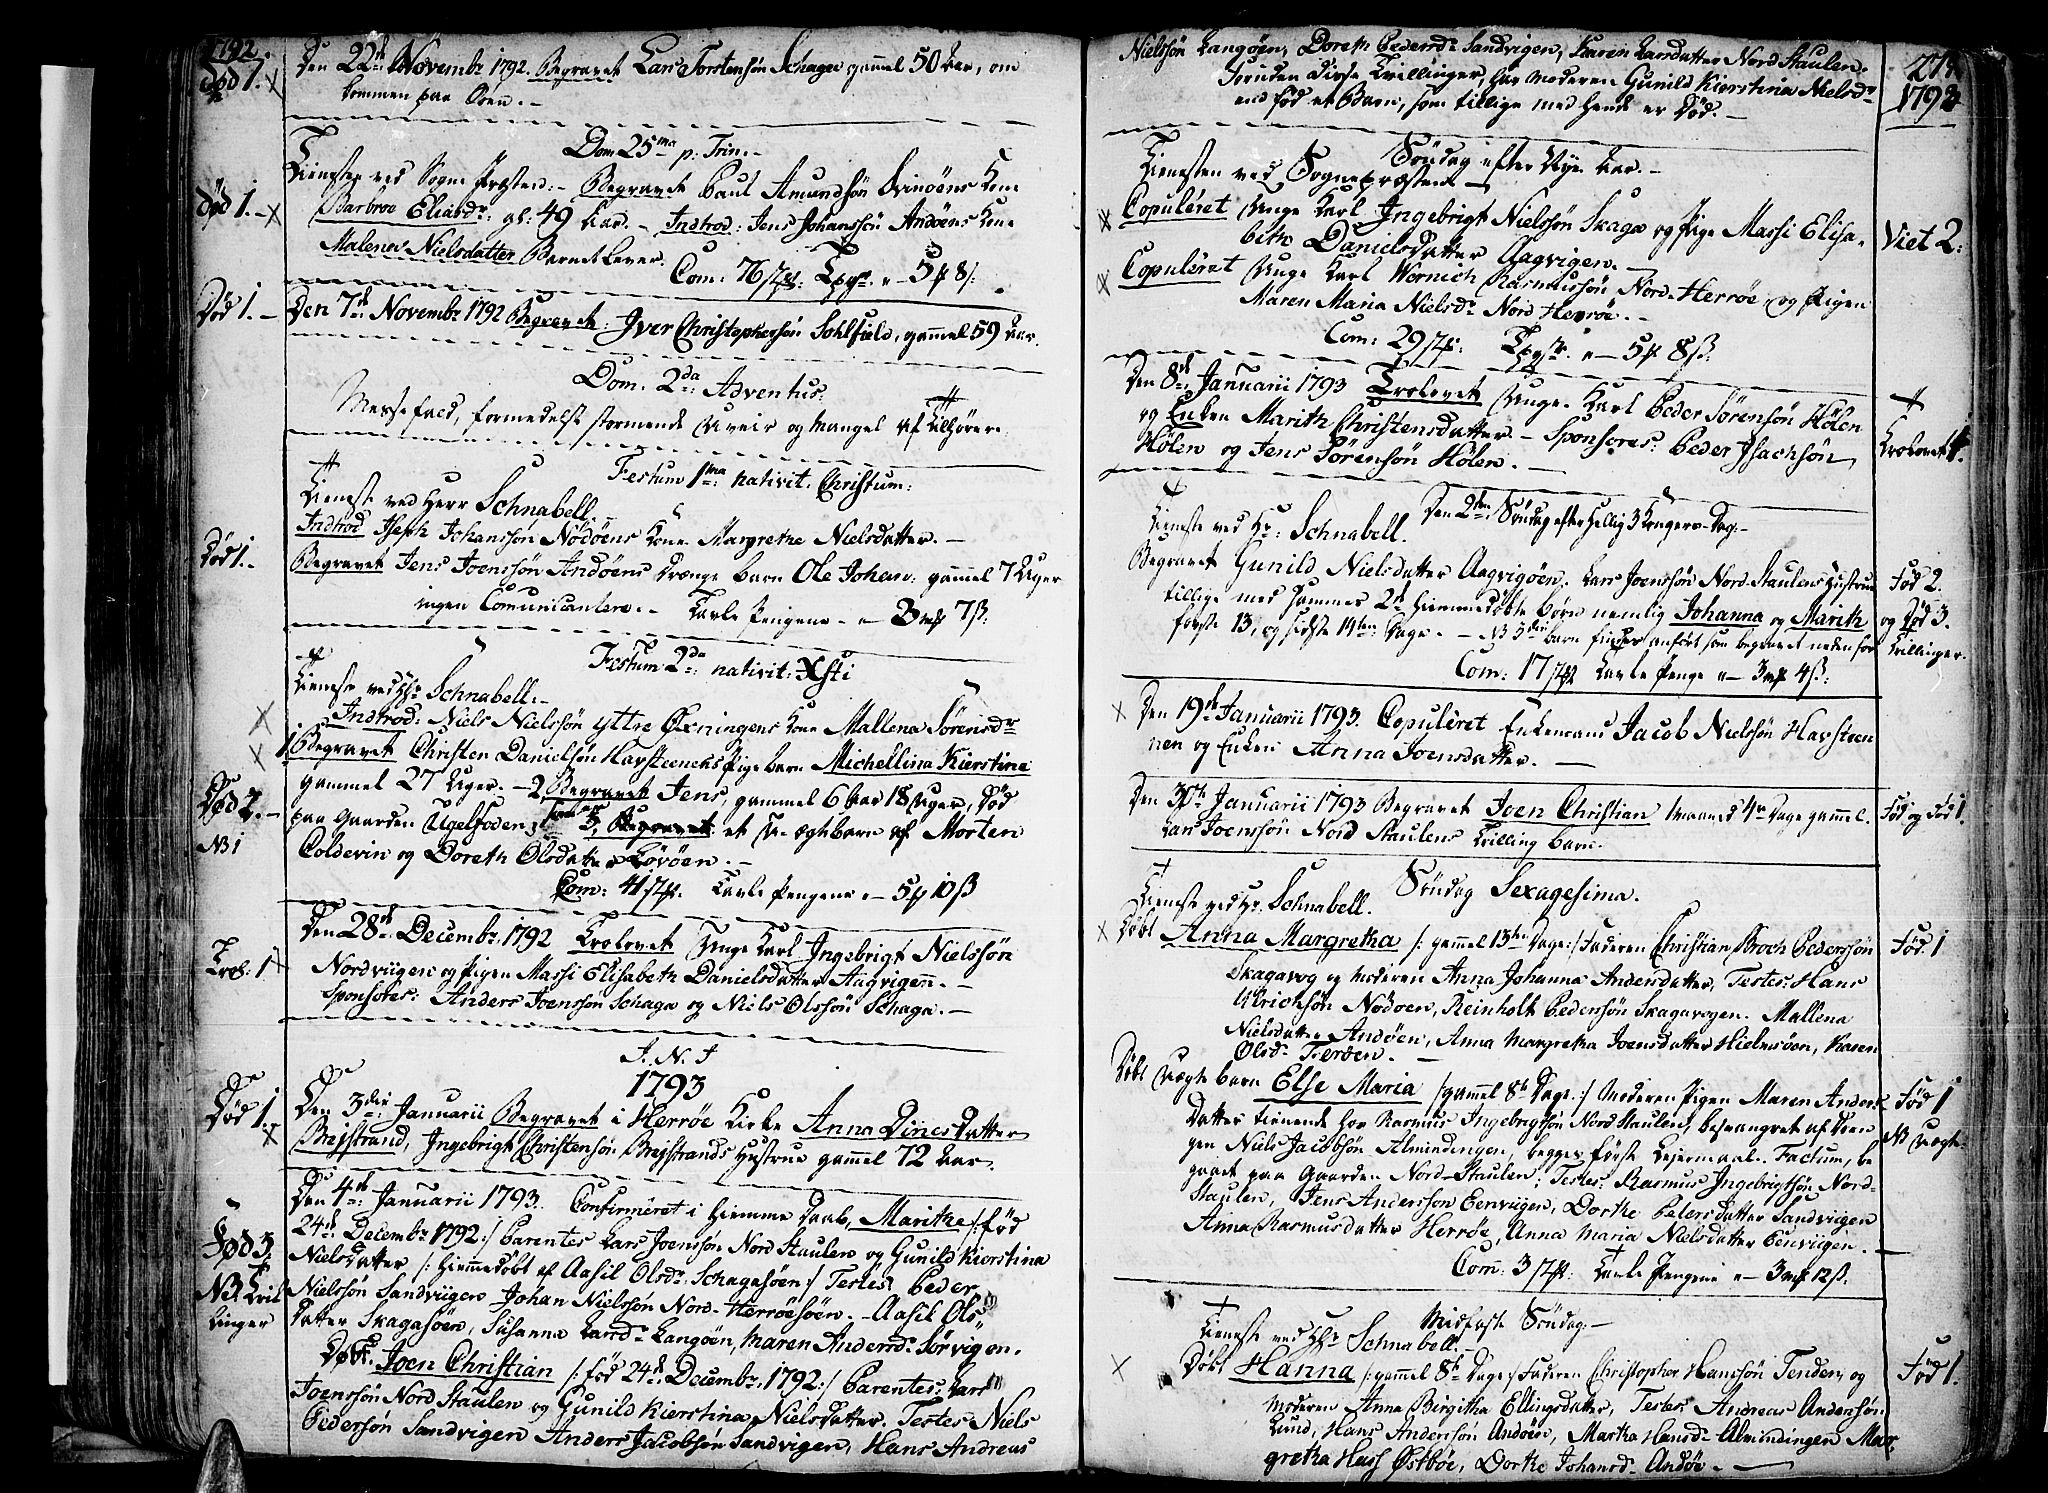 1792.
Død 1.
Den 22de Novembr 1792. Begravet Lars Torstensøn Schagen gammel 50 Aar, om
kommen paa Søen.
Dom 25ma p: Trin.
Tieneste ved Sogne Præsten:- Begravet Paul Amundsøn Kone
Død 1.
Barbroe Eliasdr. gl: 49 Aar. - Introd: Jens Johanssøn Andøens Kone
Malena Nielsdatter Barnet lever.
Com: 76 5 8
Død 1.
Den 7de Novembr 1792 Begravet: Iver Christophersøn Sohlfield, gammel 59 Aar.
Dom. 2da Adventus.
Messefald, formedelst stormende Uveir og Mangel af Tilhørere.
Festum 1ma: nativit: Christum:
Tieneste ved Herr Schnabell
Introd Iseph Johanssøn Nødøens Kone Margrethe Nielsdatter.
Død 1.
Begravet Jens Joenssøn Andøens Drænge barn Ole Johan: gammel 7 Uger
ingen Comunicantere. - Tavle Pengene 3 mk 7 ß:
Festum 2da: nativit: Xsti
Tieneste ved Hr Schnabell:-
Introd: Niels Nielssøn yttre Øxningens Kone Mallena Sørensdr
1, Begravet Christen Danielsøn Havsteenens Pigebarn Michellina Kierstina
gammel 27 Uger. - 2 Begravet Jens, gammel 6 Aar 18 Uger, Død
Død 2.
paa Gaarden Ugelfoden; 3, Begravet et Uægte barn af Morten
NB 1
Coldevin og Doreth Olsdatter Løvøen.
Com: 41 Tavle Pengene 5 10 ß
Den 28de Decembr. 1792 Trolovet Unge Karl Ingebrigt Nielssøn
Trol: 1
Nordviigen og Pigen Massi Elisabeth Danielsdatter Aagvigen.
Sponsores: Anders Joenssøn Schaga og Niels Olssøn Schaga.
I. N. J
1793
Død 1.
Den 3die Januarii Begravet i Herrøe Kirke Anna Dinesdatter
Brejstrand, Ingebrigt Christensøn Brejstrands Hustrue gammel 72 Aar.
Den 4de: Januarii 1793. Confirmeret i Hiemme Daab, Marithe /: fød
24de Decembr 1792:/ Parentes Lars Joenssøn Nord Staulen og Gunild Kierstina
Fød 3.
Nielsdatter /: Hiemmedøbt af Aasil Olsdr. Schagasøen:/ Testes: Peder
NB. Tril
linger
Nielssøn Sandviigen Johan Nielssøn Nord-Herrøesøen. - Aasil Ols
datter Skagasøen, Susanna Larsdr Langøen, Maren Andersdr Sørvigen.
Døbt. Joen Christian /: fød 24de Decembr. 1792:/ Parentes: Lars
Joenssøn Nord Staulen og Gunild Kierstina Nielsdatter. Testes Niels
Pedersøn Sandvigen Anders Jacobsøn Sandvigen, Hans Andreas
Nielssøn Langøen, Doreth Pedersdr Sandvigen, Karen Larsdatter Nord Staulen.
Foruden disse Trillinger, har Moderen Gunild Kierstina Nielsdr
end fød et Barn, som tillige med hende er Død.
1793
Søndag efter Nye Aar.
Tienesten ved Sognepræsten
Copuleret Unge Karl Ingebrigt Nielssøn Skaga og Pige Massi Elisa-
beth Danielsdatter Aagvigen.
Viet 2:
Copuleret Unge Karl Wernich Rasmussøn Nord-Herrøe og Pigen
Maren Maria Nielsdr Nord Herrøe.
Com: 29 5 8 ß:
Den 8de Januarii 1793 Trolovet Unge Karl Peder Sørensøn Hølen
og Enken Marith Christensdatter - Sponsores: Peder Isachsøn
Trolovet 1.
Hølen og Jens Sørensøn Hølen.
Den 2den Søndag efter Hellig 3 Kongers-Dag.
Tieneste ved Hr: Schnabell.
Begravet Gunild Nielsdatter Aagvigøen. Lars Joenssøn Nord-Staulens Hustrue
Fød 2.
tillige med sammes 2de hiemmedøbte børn nemlig Johanna og Marith
og Død 3.
første 13, og sidste 14ten Dage. - NB 3die barn findes anført som begravet neden for
Trillinger.
Com: 17 Tavle Penge 3 mk 4 ß:
Den 19de Januarii 1793. Copuleret Enkemand Jacob Nielsøn Havsteen
nen og Enken Anna Joensdatter.
Den 30te Januarii 1793 Begravet Joen Christian Maaned 4re Dage gammel.
Fød og Død 1.
Lars Joenssøn Nord Staulens Trilling barn.
Søndag Sexagesima.
Tieneste ved Hr. Schnabell.
Døbt Anna Margretha /: gammel 13ten Dage:/ Faderen Christian Broch Pederssøn
Fød. 1
Skagavog og Moderen Anna Johanna Andersdatter, Testes: Hans
Ulrichsøn Nødøen, Reinholt Pedersøn Skagavogen. Mallena
Nielsdatter Andøen, Anna Margretha Joensdatter Hielmsøen, Karen
Olsdr. Fierøen.
Døbt Uægte barn Else Maria /: gammel 8te Dage:/ Moderen Pigen Maren Anders-
Fød 1
Datter tienende hos Rasmus Ingebrigtsøn Nord Staulen, besvangret af Dren
NB uægte
gen Niels Jacobsøn Almindingen, begges første Lejermaal. Factum, be
gaaet paa Gaarden Nord-Staulen; Testes: Rasmus Ingebrigtsøn Nord-
Staulen, Jens Andersson Eenviigen, Dorthe Pedersdatter Sandviigen
Anna Rasmusdatter Herrøe, Anna Maria Nielsdatter Eenviigen.
Com: 3 Tavle Pengene 3 mk 12 ß.
Midfaste Søndag:-
Tieneste ved Hr Schnabell.-
Døbt Hanna /: gammel 8te Dage:/ Faderen Christopher Hanssøn Tenden, og
Fød 1.
Moderen Anna Birgitha Ellingsdatter, Testes Andreas Andersøn
Lund, Hans Andersøn Andøen, Martha Hansdr Almindingen Mar
gretha Hass Østbøe, Dorthe Johansdr Andøe.